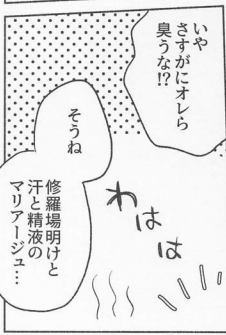 いや
さすがにオレら
臭うな!?
そうね
修羅場明けと
汗と精液の
マリアージュ…
わはは